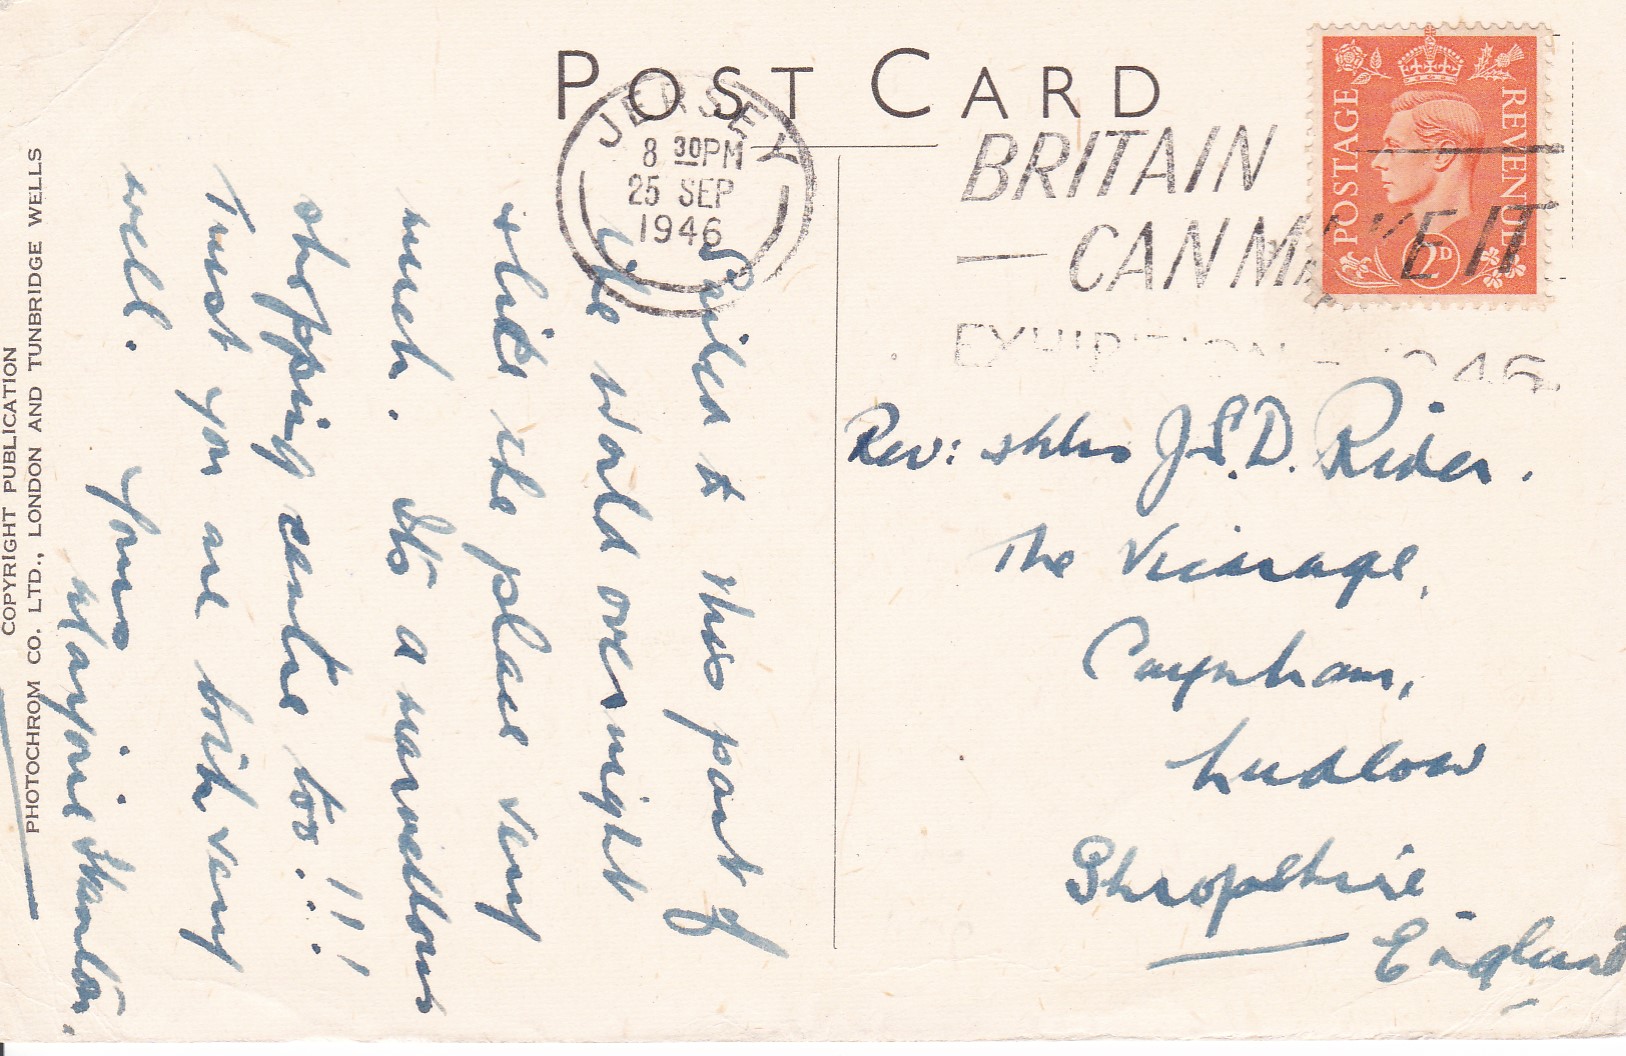 POST CARD
JERSEY
8 30PM
25 SEP
1946
BRITAIN
CAN MAKE IT
EXHIBITION 1946
POSTAGE
REVENUE
2D
Sailed to this part of
the World overnight
& like the place very
much. It's a marvellous
shopping centre too!!!
Trust you are both very
well. Yours
Marjorie Stanton.
Rev: & Mrs J.S.D. Rider.
The Vicarage,
Caynham,
Ludlow
Shropshire
England
COPYRIGHT PUBLICATION
PHOTOCHROM CO. LTD., LONDON AND TUNBRIDGE WELLS